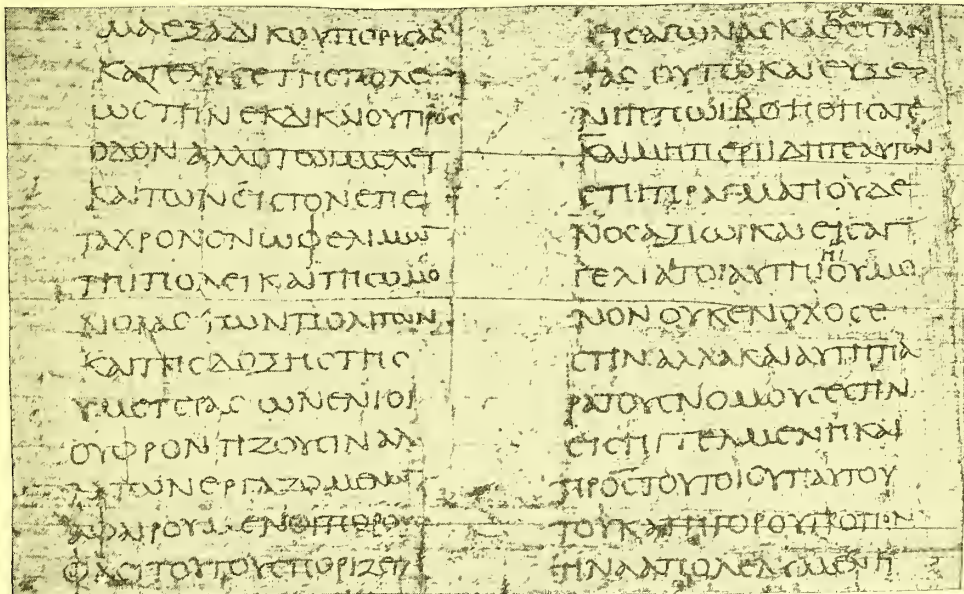 ΜΑΕΞΑΔΙΚΟΥΠΟΡΙCΑC
ΚΑΤΕΛΥCΕΤΗCΠΟΛΕ
ΩCΤΗΝΕΚΔΙΚΑΙΟΥΠΡΟC
ΟΔΟΝΑΛΛΟΤΩΙΜΕΛΕΙ
ΚΑΙΤΩΝΕΙCΤΟΝΕΠΕΙ
ΤΑΧΡΟΝΟΝΩΦΕΛΙΜΩΝ
ΤΗΙΠΟΛΕΙΚΑΙΤΗCΟΜΟ
ΝΟΙΑCΤΩΝΠΟΛΙΤΩΝ
ΚΑΙΤΗCΔΟΞΗCΤΗC
ΥΜΕΤΕΡΑCΩΝΕΝΙΟΙ
ΟΥΦΡΟΝΤΙΖΟΥCΙΝΑΛ
ΛΑΤΩΝΕΡΓΑΖΟΜΕΝΩΝ
ΑΦΑΙΡΟΥΜΕΝΟΙΠΟΡΟΥC
ΦΑCΙΤΟΥΤΟΥCΠΟΡΙΖΕΙΝ
ΕΙCΑΓΩΝΑCΚΑΘΕΙCΤΑΝ
ΤΑCΟΥΤΩΚΑΙΕΥΞΕ
ΝΙΠΠΩΙΒΟΗΘΗCΑΤΕ
ΚΑΙΜΗΠΕΡΙΙΔΗΤΕΑΥΤΟΝ
ΕΠΙΠΡΑΓΜΑΤΙΟΥΔΕ
ΝΟCΑΞΙΩΙΚΑΙΕΙCΑΓ
ΓΕΛΙΑΤΟΙΑΥΤΗΙΗΙΟΥΜΟ
ΝΟΝΟΥΚΕΝΟΧΟCΕ
CΤΙΝΑΛΛΑΚΑΙΑΥΤΗΠΑ
ΡΑΤΟΥCΝΟΜΟΥCΕCΤΙΝ
ΕΙCΗΓΓΕΛΜΕΝΗΚΑΙ
ΠΡΟCΤΟΥΤΟΙCΥΠΑΥΤΟΥ
ΤΟΥΚΑΤΗΓΟΡΟΥΤΡΟΠΟΝ
ΤΙΝΑΑΠΟΛΕΛΥΜΕΝΗ